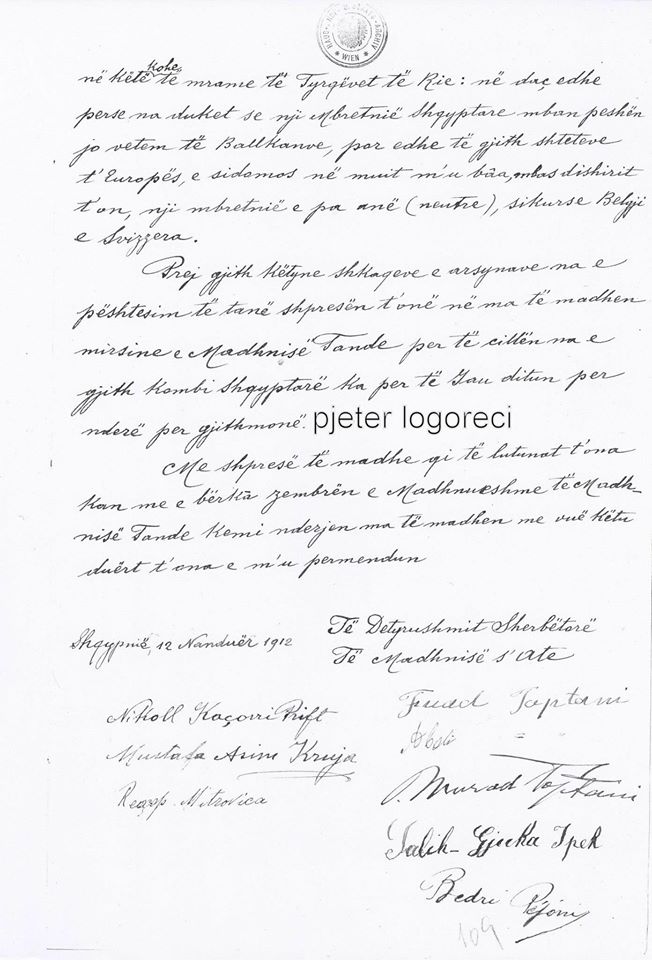 HAUS-, HOF- U. STAATS-ARCHIV
* WIEN *
në këtë kohe të mrame të Tyrqëvet të Rie: në daç edhe
perse na duket se nji Mbretnië Shqyptare mban peshën
jo vetem të Ballkanve, por edhe të gjith shteteve
t'Europës, e sidomos në muit m'u bâa, mbas dishirit
t'on, nji mbretnië e pa anë (neutre), sikurse Belgji
e Svizzera.
Prej gjith këtyne shkaqeve e arsynave na e
pështesim të tanë shpresën t'onë në ma të madhen
mirsine e Madhnisë Tande per të cillën na e
gjith Kombi Shqyptarë ka per të Jau ditun per
nderë per gjithmonë. pjeter logoreci
Me shpresë të madhe qi të lutunat t'ona
kan me e bërkà zembrën e Madhnueshme të Madh-
nisë Tande kemi nderjen ma të madhen me vuë këtu
duërt t'ona e m'u permendun
Shqypnië, 12 Nanduër 1912
Të Detyrushmit Sherbëtorë
Të Madhnisë s'Ate
Nikoll Kaçorri Prift
Mustafa Asim Kruja
Recep Mitrovica
Fuad Toptani
Abdi = =
Murad Toptani
Salih-Gjuka Ipek
Bedri Pejani
109